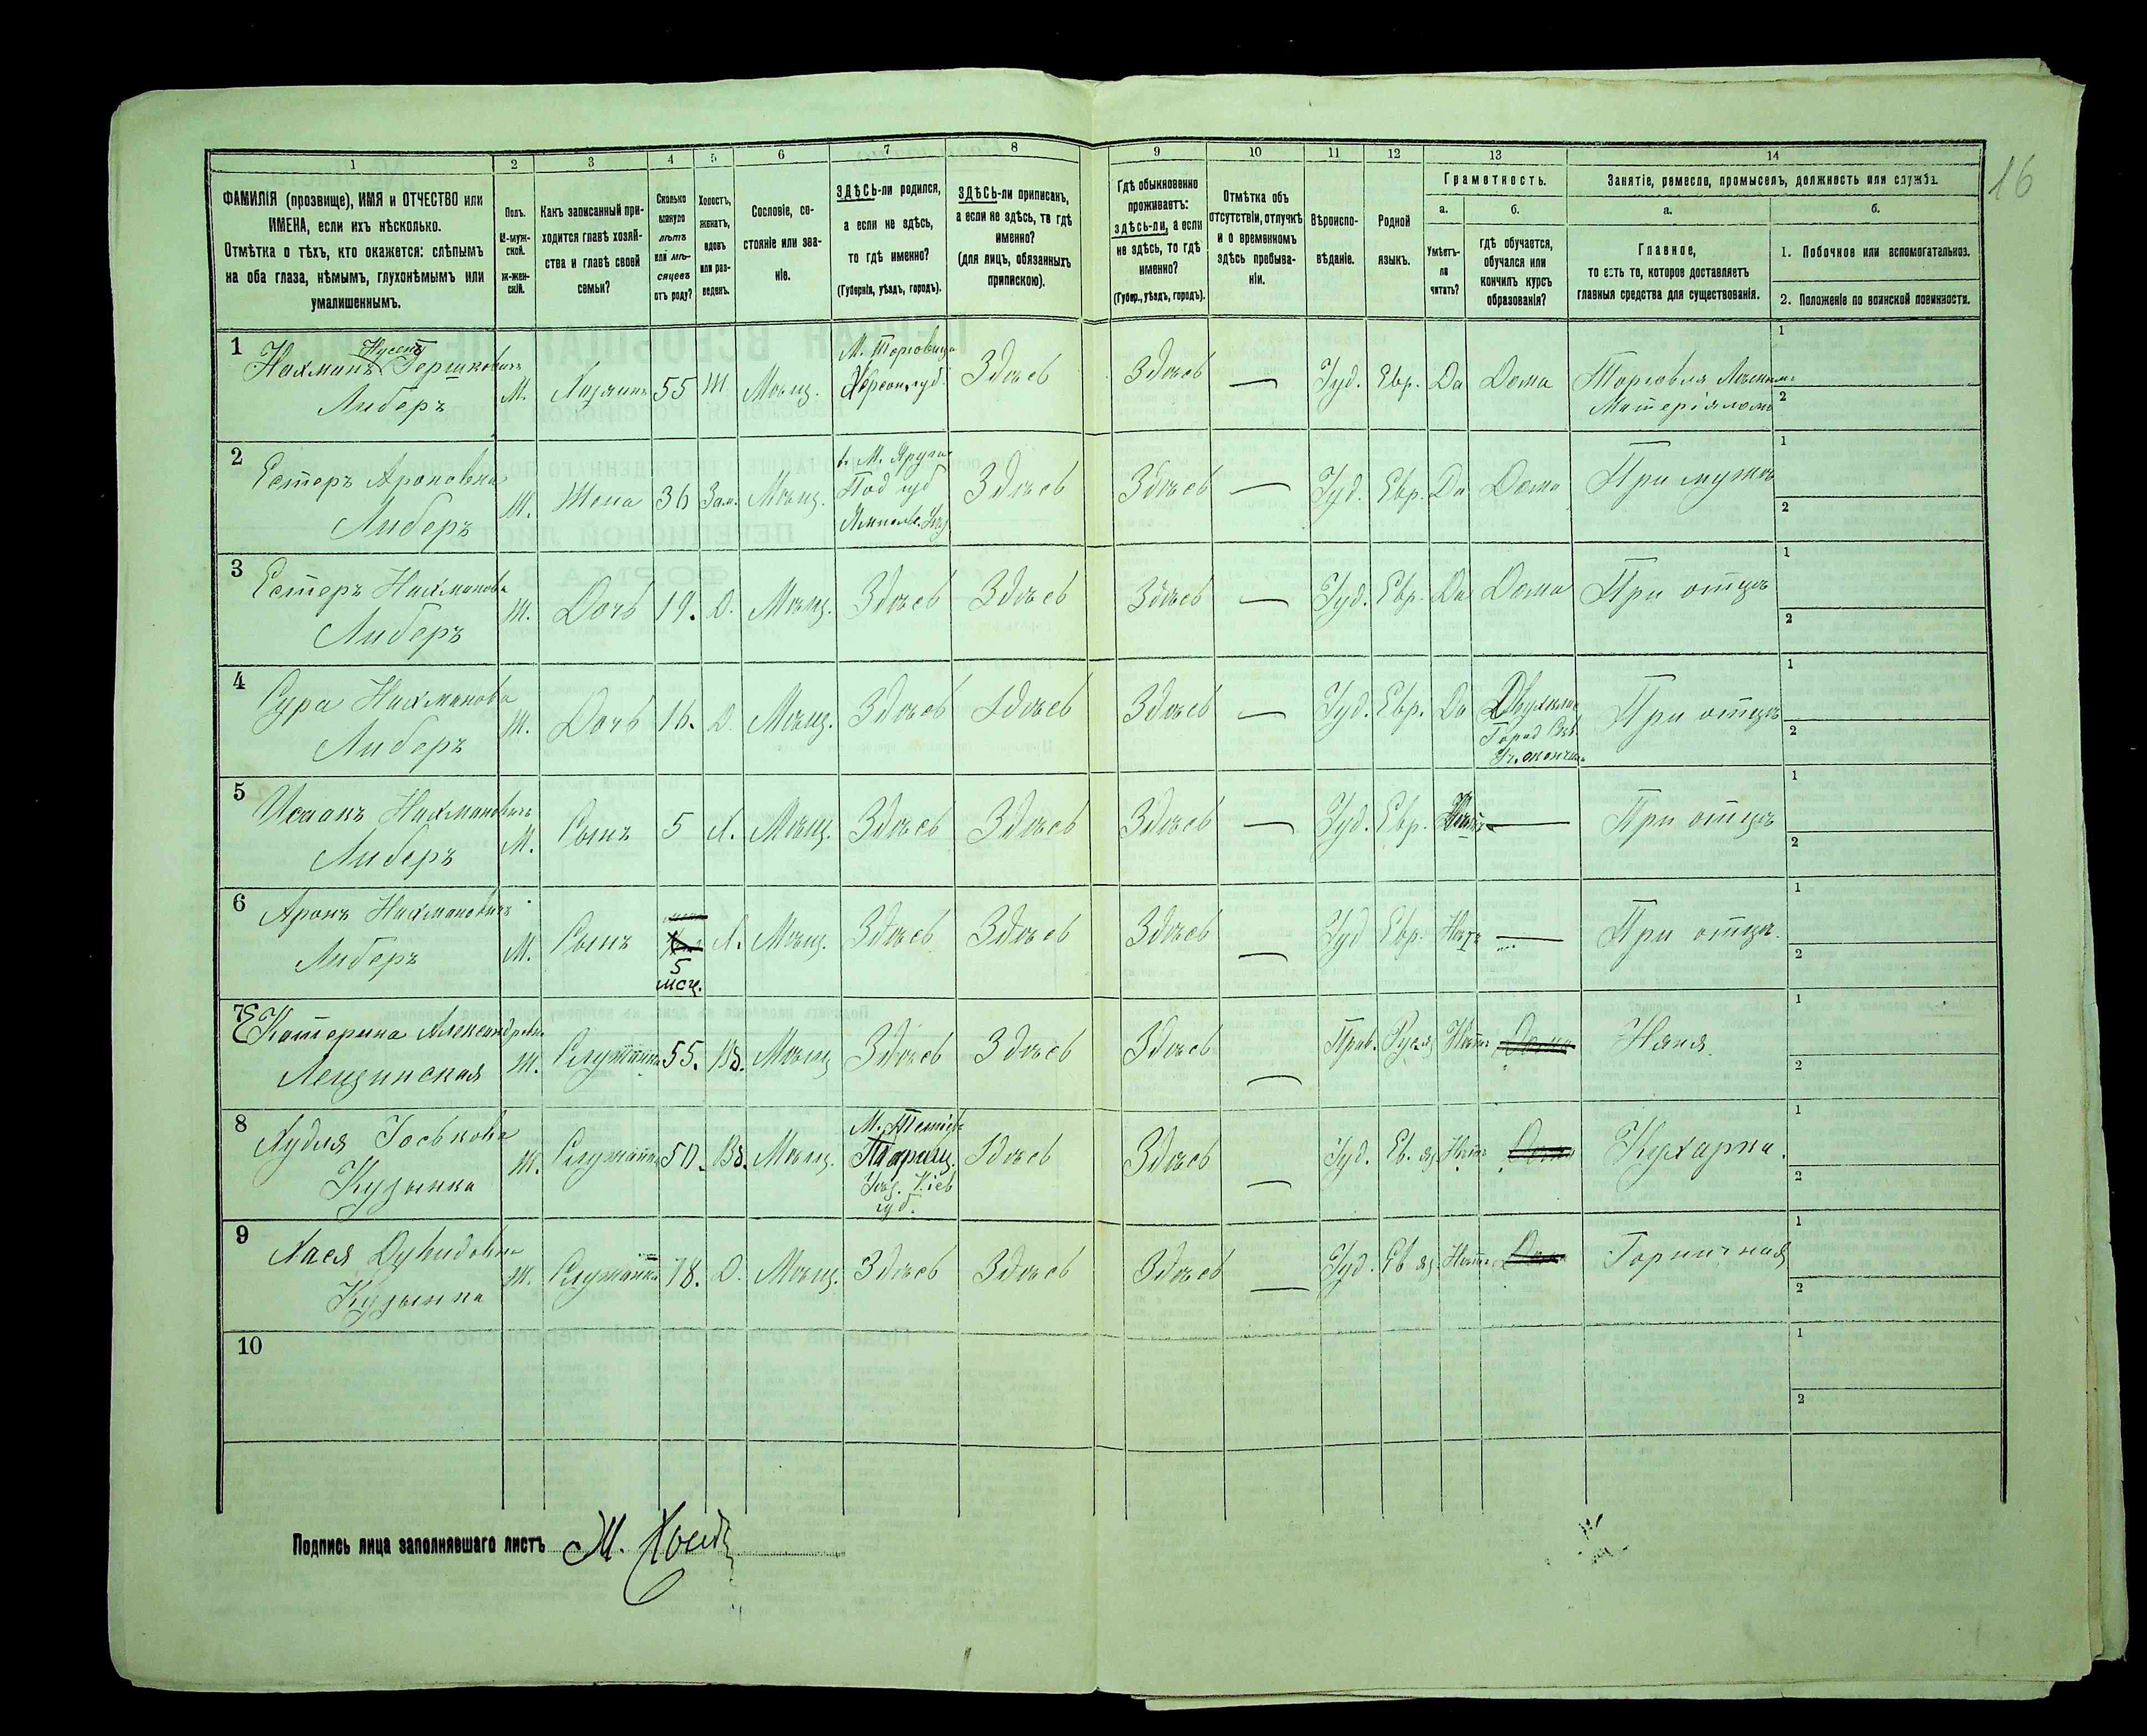 16
1 2 3 4 5 6 7 8 9 10 11 12 13 14
ФАМИЛІЯ (прозвище), ИМЯ и ОТЧЕСТВО или
ИМЕНА, если ихъ нѣсколько.
Отмѣтка о тѣхъ, кто окажется: слѣпымъ
на оба глаза, нѣмымъ, глухонѣмымъ или
умалишеннымъ.
Полъ.
М-муж-
ской.
ж-жен-
скій.
Какъ записанный при-
ходится главѣ хозяй-
ства и главѣ своей
семьи?
Сколько
минуло
лѣтъ
или мѣ-
сяцевъ
отъ роду?
Холостъ,
женатъ,
вдовъ
или раз-
веденъ.
Сословіе, со-
стояніе или зва-
ніе.
ЗДѢСЬ-ли родился,
а если не здѣсь,
то гдѣ именно?
(Губернія, уѣздъ, городъ).
ЗДѢСЬ-ли приписанъ,
а если не здѣсь, то гдѣ
именно?
(для лицъ, обязанныхъ
припискою).
Гдѣ обыкновенно
проживаетъ:
здѣсь-ли, а если
не здѣсь, то гдѣ
именно?
(Губер., уѣздъ, городъ).
Отмѣтка объ
отсутствіи, отлучкѣ
и о временномъ
здѣсь пребыва-
ніи.
Вѣроиспо-
вѣданіе.
Родной
языкъ.
Грамотность.
а.
Умѣетъ-
ли
читать?
б.
гдѣ обучается,
обучался или
кончилъ курсъ
образованія?
Занятіе, ремесло, промыселъ, должность или служба.
а.
Главное,
то есть то, которое доставляетъ
главныя средства для существованія.
б.
1. Побочное или вспомогательное.
2. Положеніе по воинской повинности.
1
Нусенъ
Нахманъ Гершковичъ
Либеръ
М. Хазяинъ 55 Ж. Мѣщ.
М. Торговица
Херсон. губ.
Здѣсь Здѣсь — Іуд. Евр. Да Дома
Торговля Лѣсным
Матеріяломъ
1
2
2
Естеръ Ароновна
Либеръ
Ж. Жена 36 Зам. Мѣщ.
в М. Яруга
Под губ
Ямполь. Уѣз
Здѣсь Здѣсь — Іуд. Евр. Да Дома При мужѣ
1
2
3
Естеръ Нахманова
Либеръ
Ж. Дочь 19. Д. Мѣщ. Здѣсь Здѣсь Здѣсь — Іуд. Евр. Да Дома При отцѣ
1
2
4
Сура Нахманова
Либеръ
Ж. Дочь 16. Д. Мѣщ. Здѣсь Здѣсь Здѣсь — Іуд. Евр. Да
Двухклас
Город
При отцѣ
1
2
5
Исаакъ Нахмановичъ
Либеръ
М. Сынъ 5 Х. Мѣщ. Здѣсь Здѣсь Здѣсь — Іуд. Евр. — При отцѣ
1
2
6
Аронъ Нахмановичъ
Либеръ
М. Сынъ
5
мѣсц.
Х. Мѣщ. Здѣсь Здѣсь Здѣсь — Іуд Евр. Нѣтъ — При отцѣ.
1
2
7
Екатерина Александровна
Лещинская
Ж. Служанка 55. Вд. Мѣщ Здѣсь Здѣсь Здѣсь — Прав. Нѣтъ Дома Няня
1
2
8
Худля Іоськова
Кузынка
Ж. Служанка 50. Вд. Мѣщ.
М. Тетіев
Таращ.
Уѣз. Кіев
губ.
Здѣсь Здѣсь — Іуд. Ев. яз Нѣтъ Дома Кухарка.
1
2
9
Хася Дувидовна
Кузынка
Ж. Служанка 18. Д. Мѣщ. Здѣсь Здѣсь Здѣсь — Іуд. Ев яз. Нѣтъ Дома Горничная
1
2
10
1
2
Подпись лица заполнявшаго листъ М.